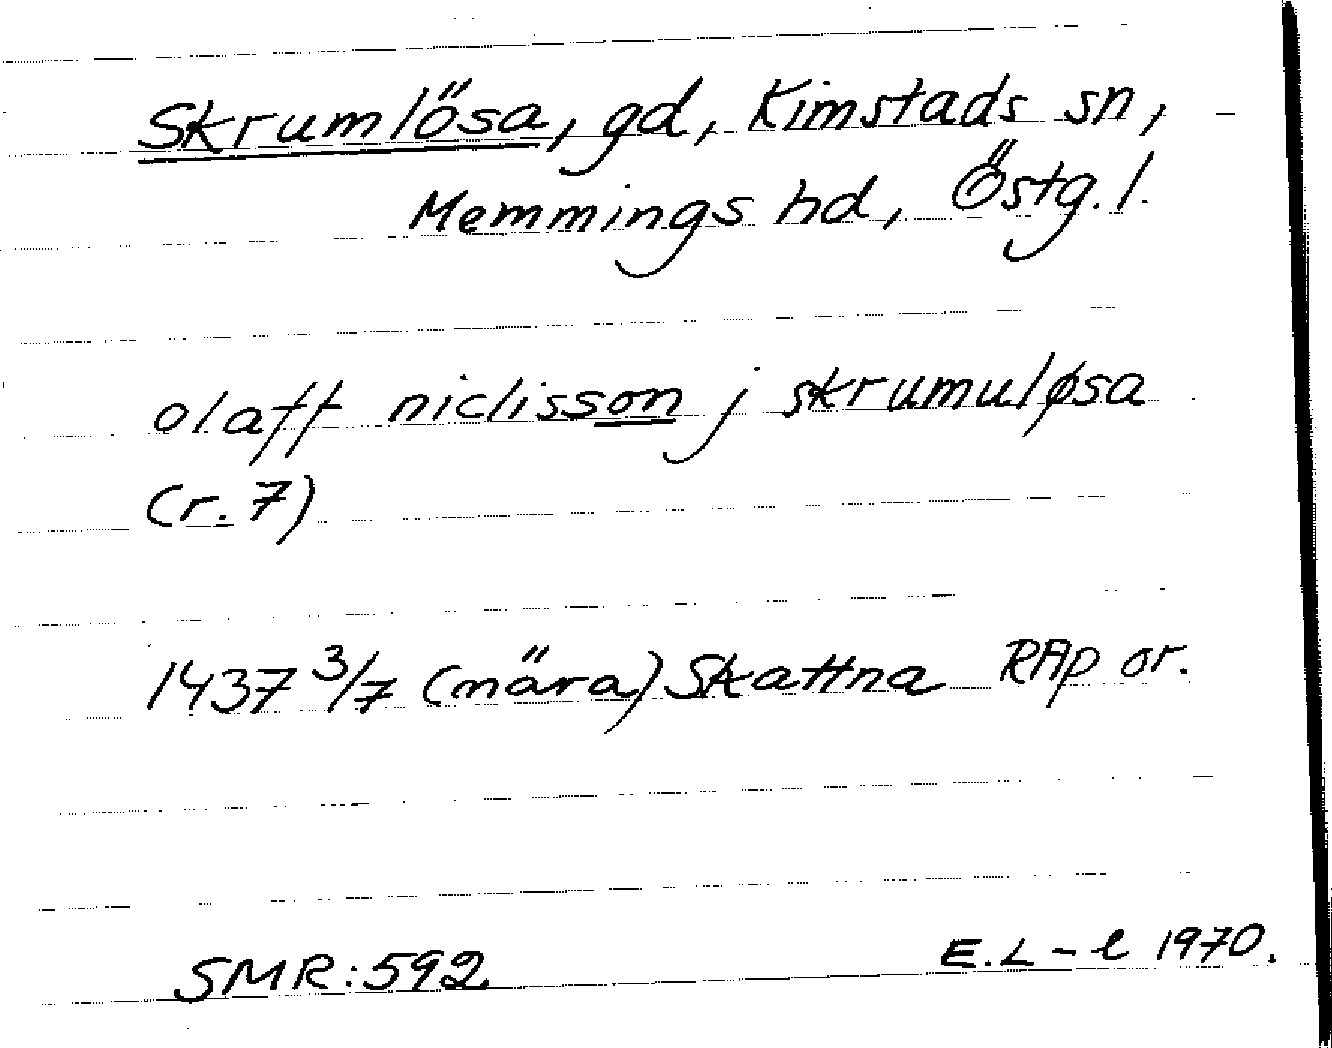 Skrumlösa, gd, Kimstads sn,
Memmings hd, Östg. l.
olaff niclisson j skrumuløsa
(r. 7)
1437 3/7 (nära) Skattna RAp or.
SMR: 592
E. L-l 1970.